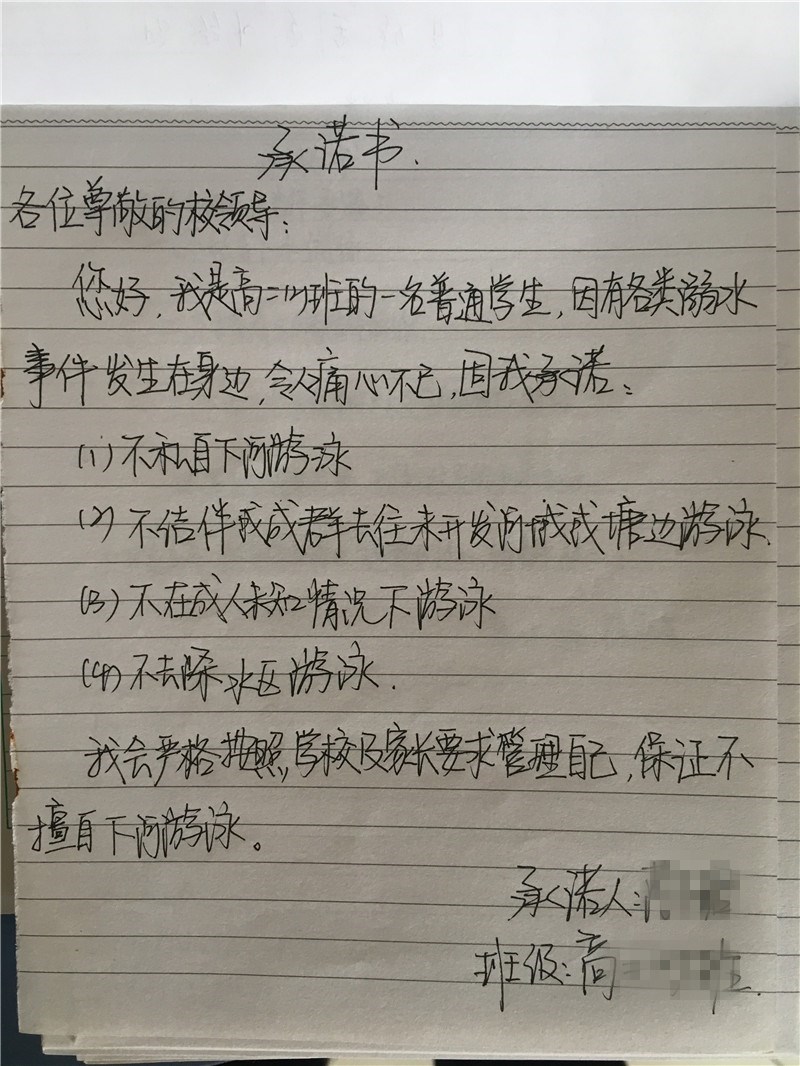 承诺书.
各位尊敬的校领导:
您好,我是高二(12)班的一名普通学生,因有各类溺水
事件发生在身边,令人痛心不已,因我承诺:
(1)不私自下河游泳
(2)不结伴或成群去往未开发河域或塘边游泳.
(3)不在成人未知情况下游泳
(4)不去深水区游泳.
我会严格按照学校及家长要求管理自己,保证不
擅自下河游泳。
承诺人:
班级:高 班.